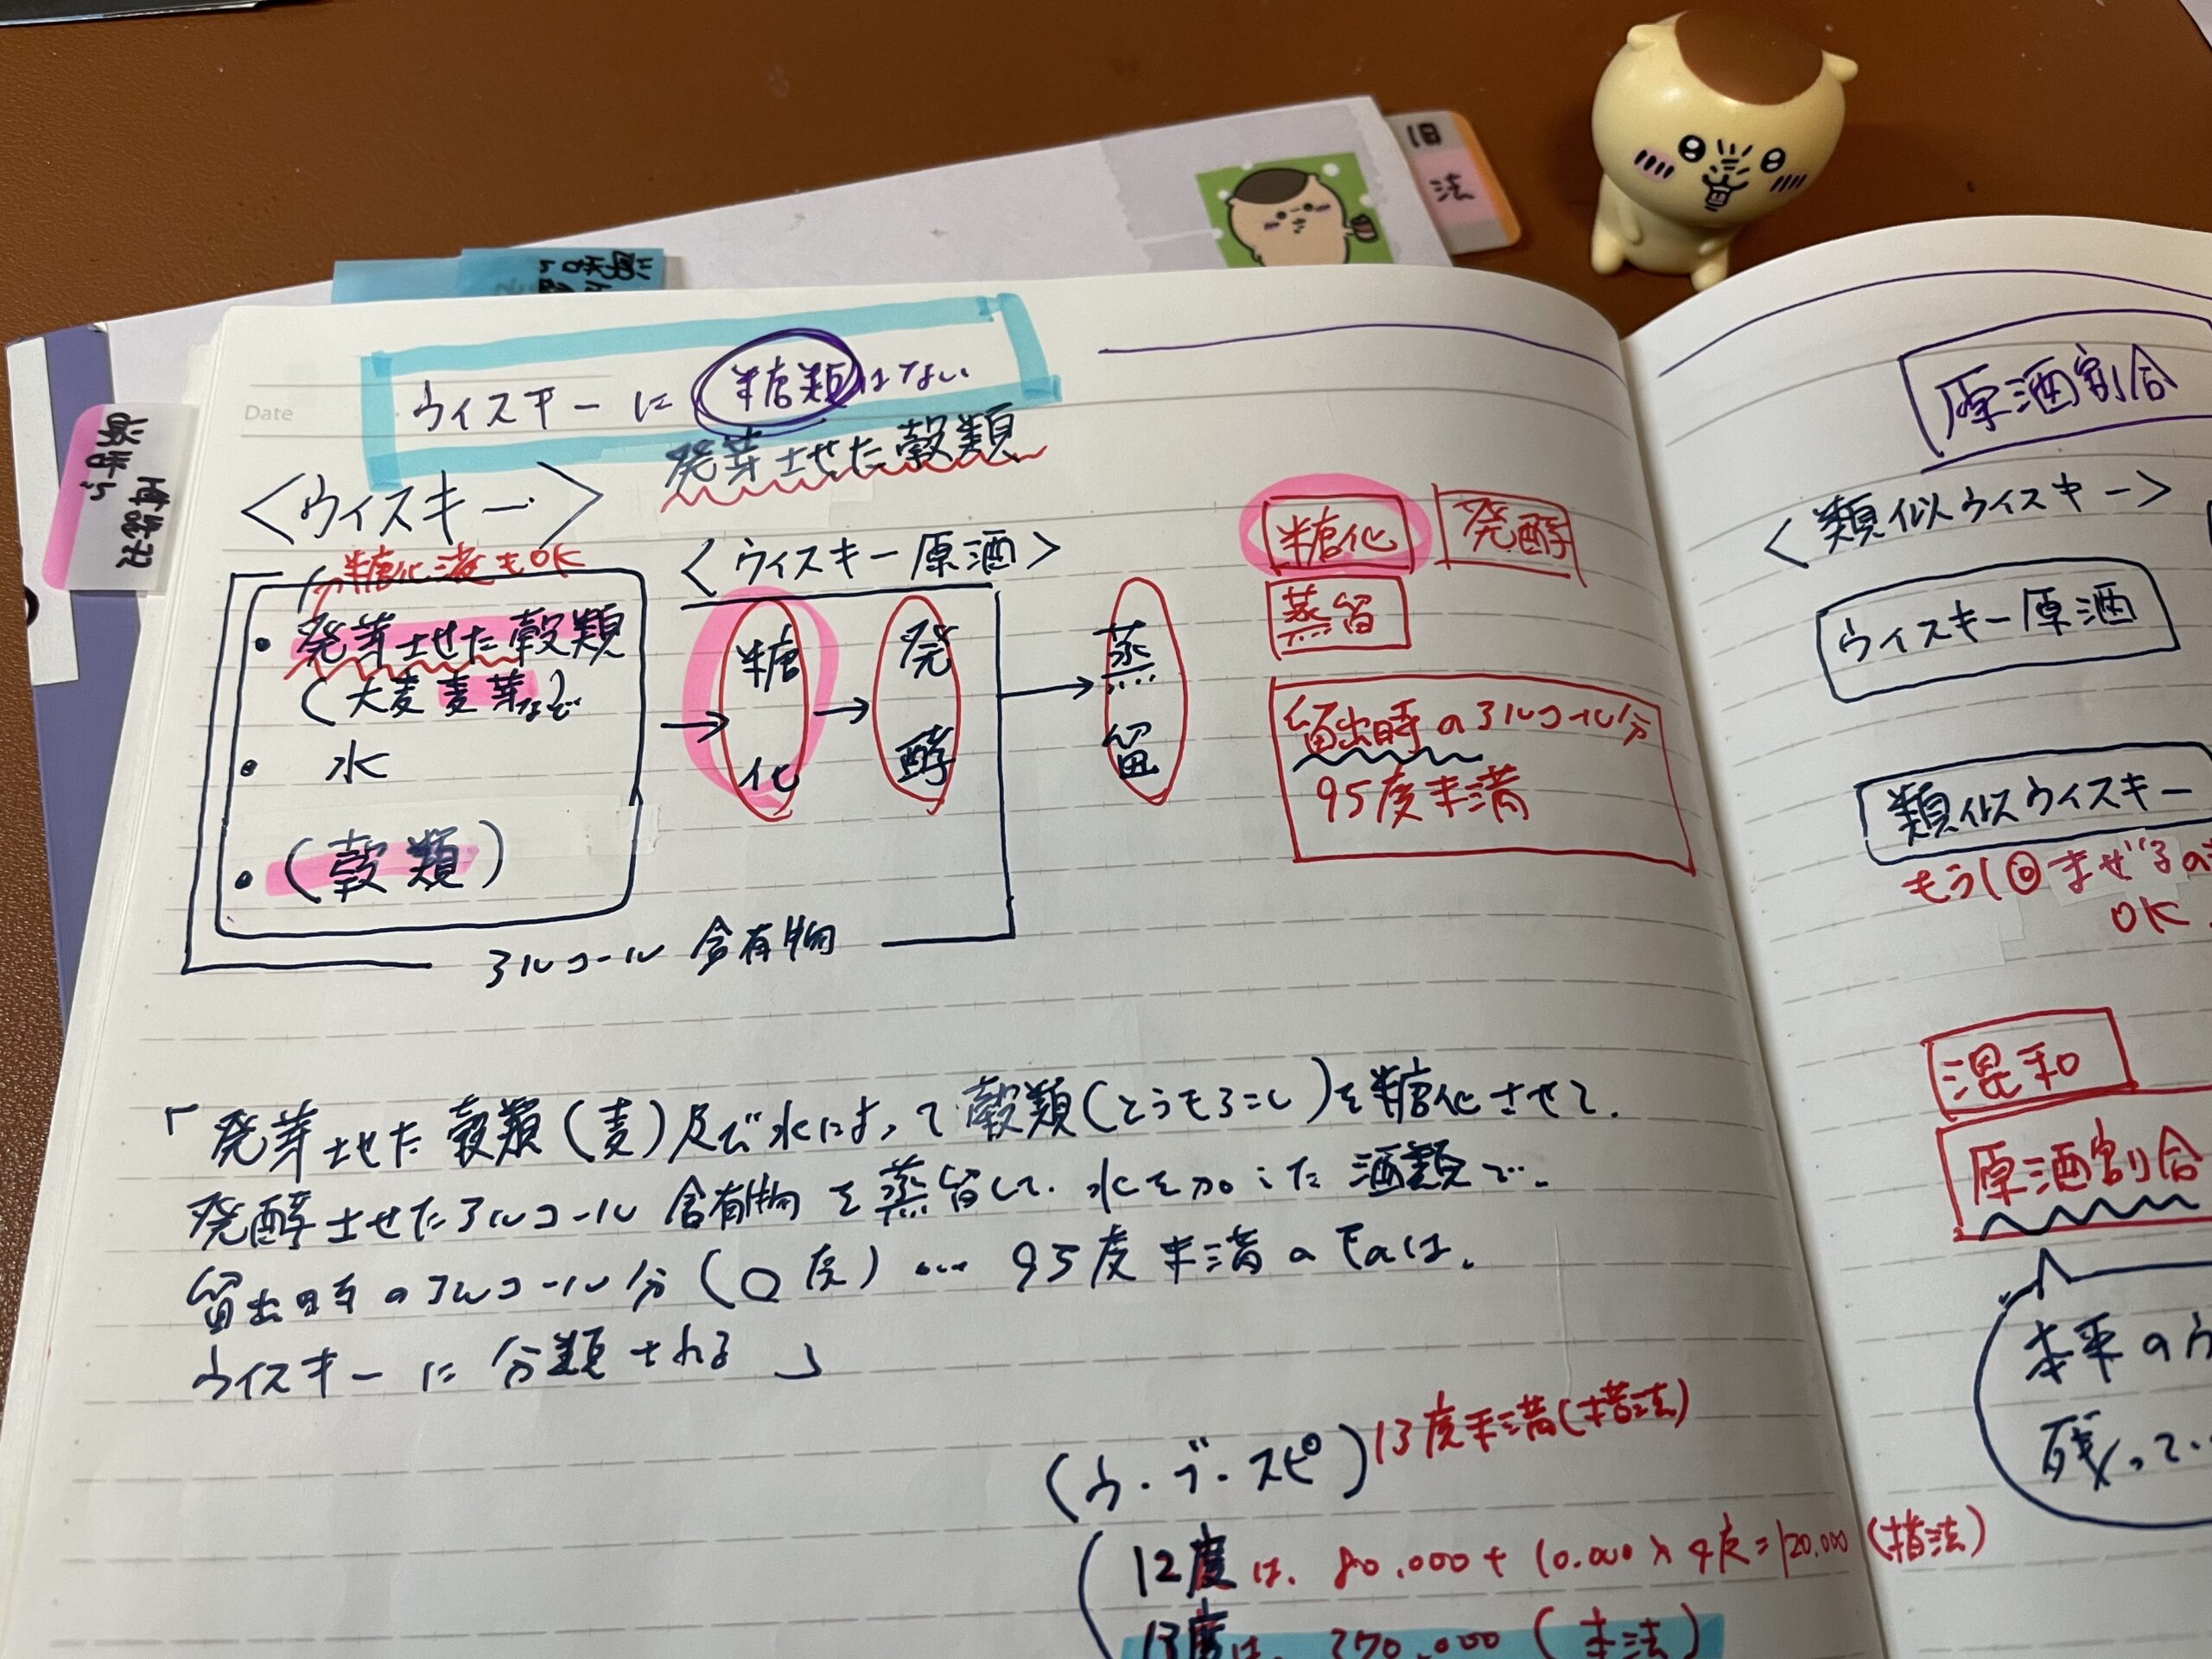 旧
法
Date
ウィスキーに糖類はない
発芽させた穀類
<ウィスキー>
糖化済もOK
・発芽させた穀類
(大麦麦芽など
・水
・(穀類)
アルコール含有物
<ウィスキー原酒>
糖化→発酵→蒸留
糖化 発酵
蒸留
留出時のアルコール分
95度未満
「発芽させた穀類(麦)及び水によって穀類(とうもろこし)を糖化させて、
発酵させたアルコール含有物を蒸留して、水を加えた酒類で、
留出時のアルコール分(○度)…95度未満のものは、
ウィスキーに分類される」
(ウ・ブ・スピ)13度未満(措法)
12度は、80,000+10,000×4度=120,000(措法)
13度は、370,000(本法)
原酒割合
<類似ウィスキー>
ウィスキー原酒
類似ウィスキー
もう1回まぜるの
OK
混和
原酒割合
本来のウ
残ってい